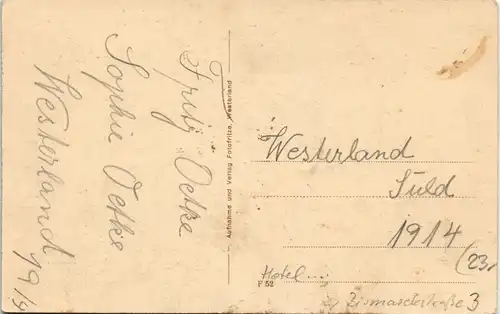 Fritz Oetke
Sophie Oetke
Westerland 1914
Aufnahme und Verlag Fotofritze, Westerland
Westerland
Süld
1914
(23,
Hotel...
F 52
Bismarckstraße 3